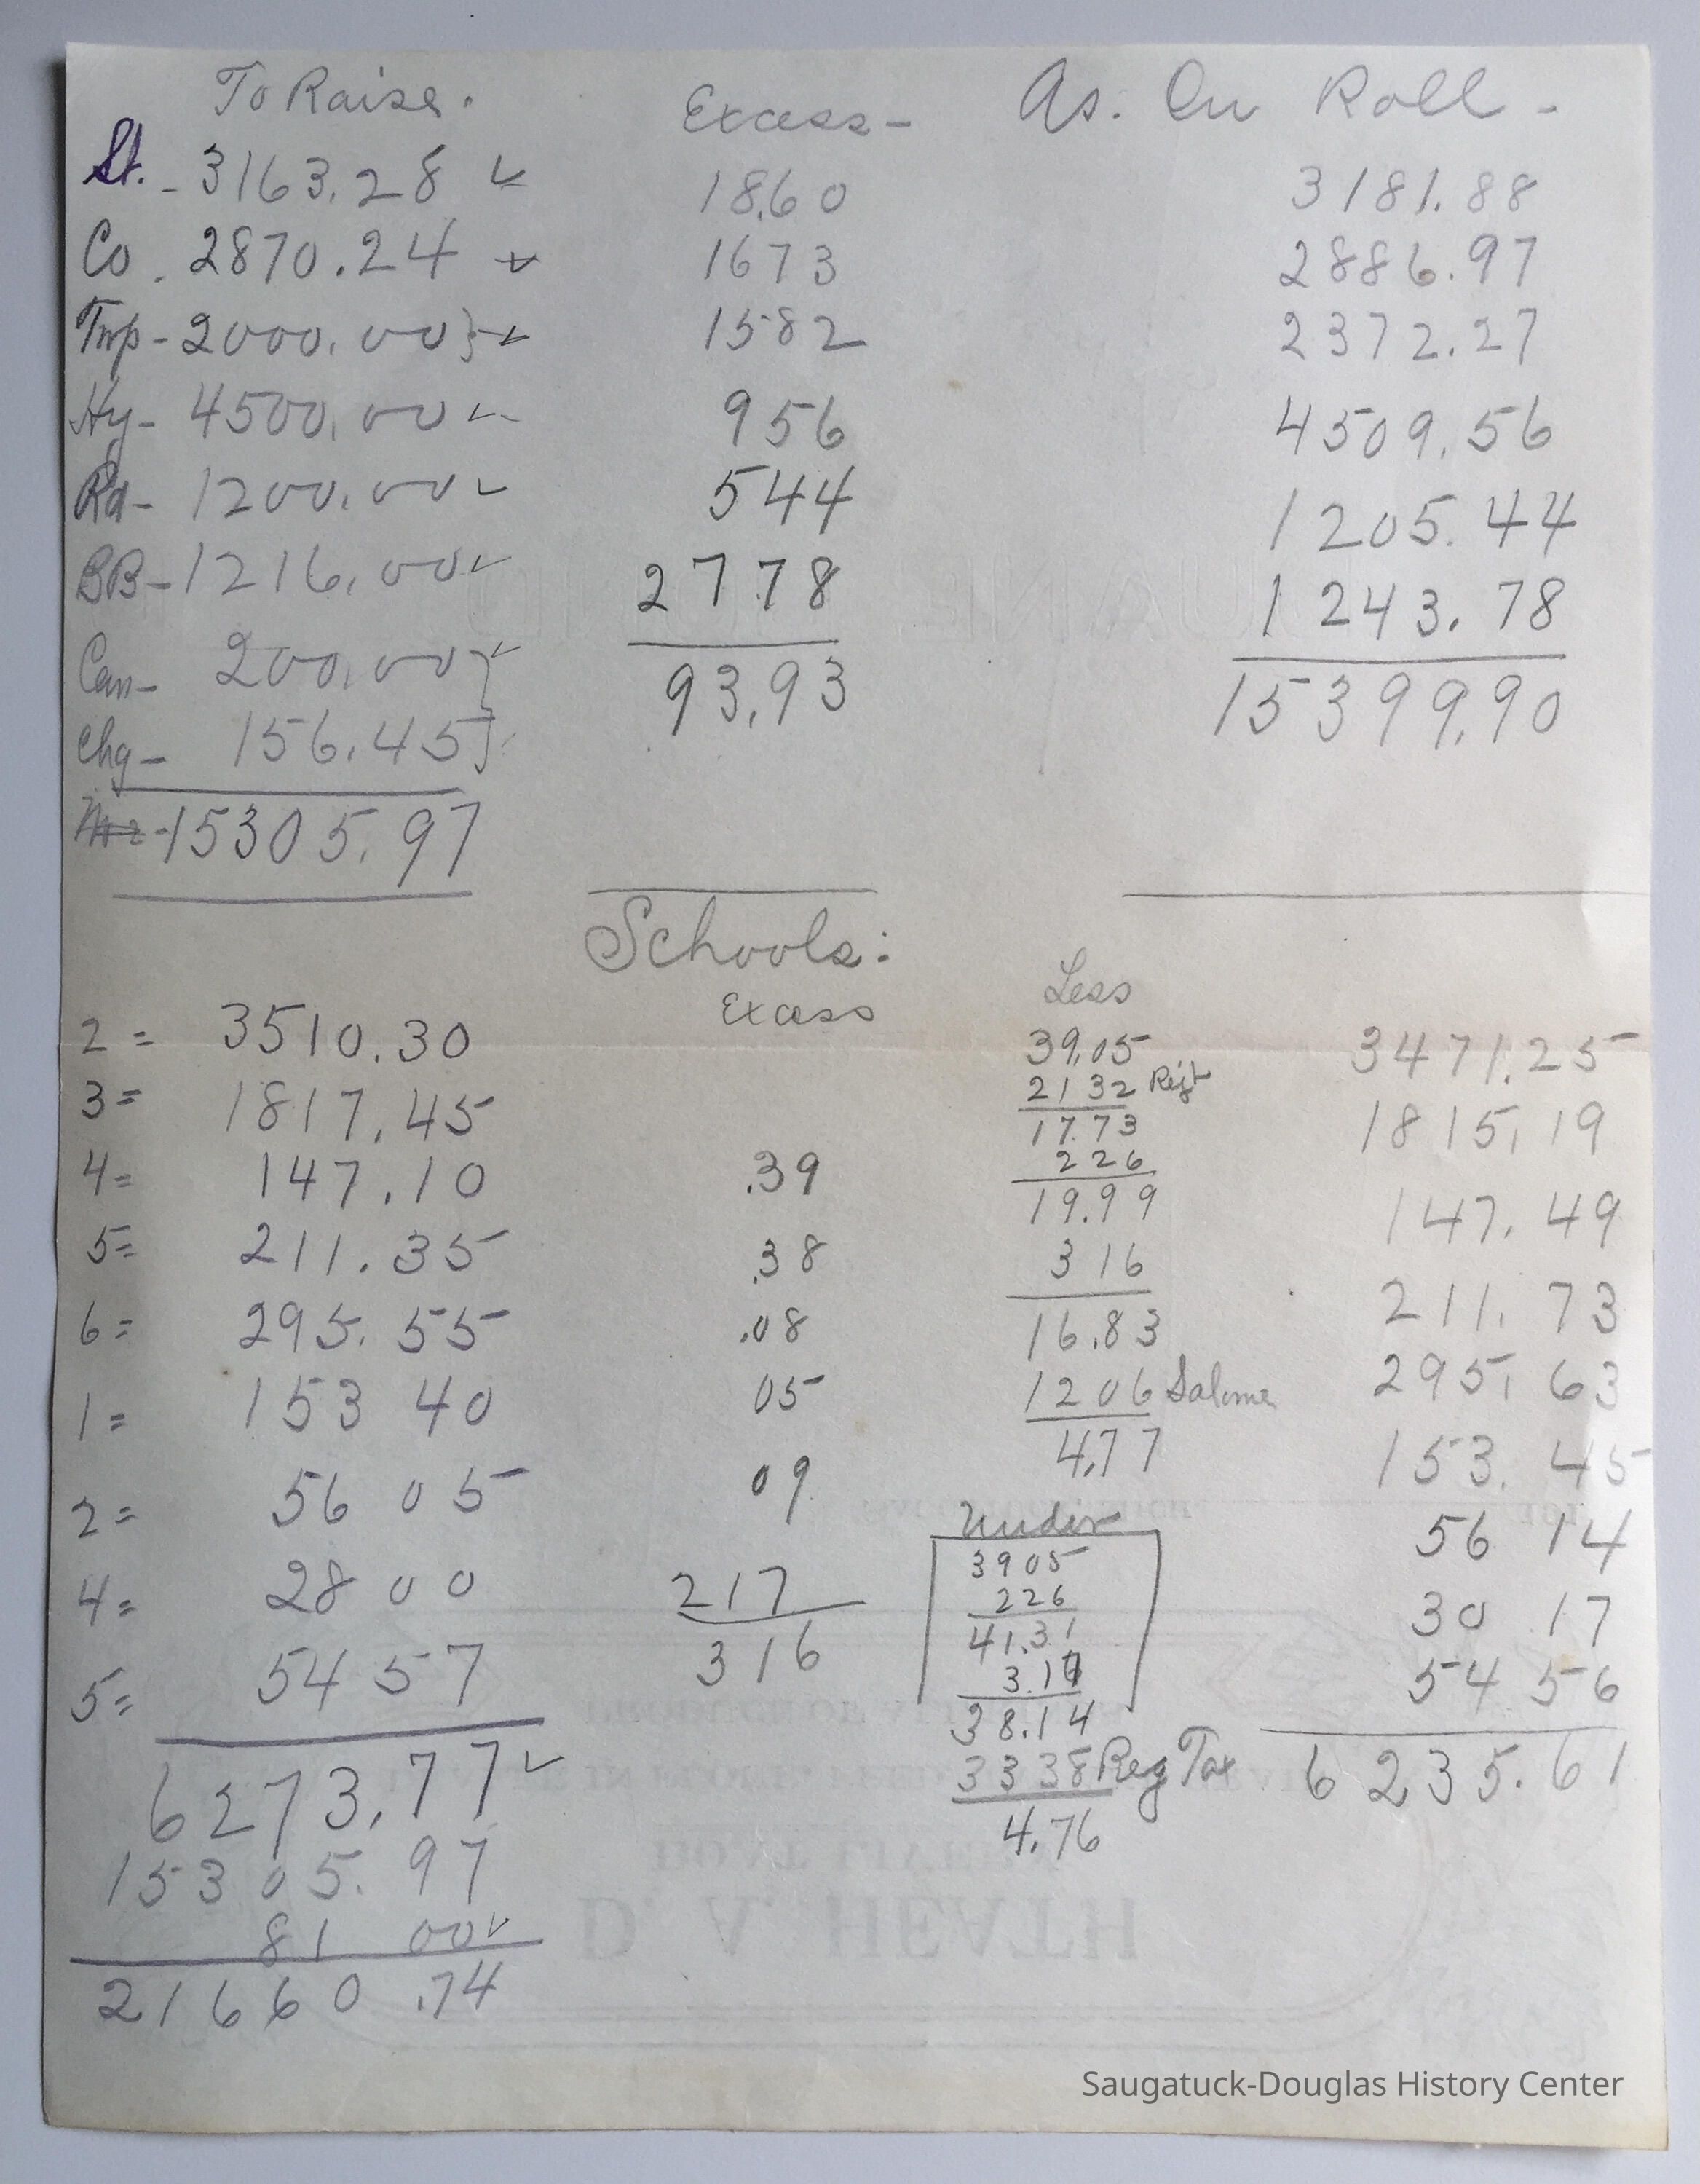 To Raise. Excess- As. On Roll-
St. - 3163.28 18.60 3181.88
Co. 2870.24 1673 2886.97
Twp - 2000.00 1582 2372.27
Hy - 4500.00 956 4509.56
Rd - 1200.00 544 1205.44
BB - 1216.00 2778 1243.78
Can - 200.00 93.93 15399.90
Chg - 156.45
15305.97
Schools:
Excess Less
2 = 3510.30 39.05 3471.25
2132 Rejt
3 = 1817.45 17.73 1815.19
226
4 = 147.10 .39 19.99 147.49
5 = 211.35 .38 316 211.73
6 = 295.55 .08 16.83 295.63
1 = 153 40 05 1206 153.45
4.77
2 = 56 05 09 56 14
Under
3905
226
4 = 28 00 217 41.31 30 17
5 = 54 57 316 3.17 54 56
38.14
6273.77 3338 Reg Tax 6235.61
15305.97 4.76
81 00
21660.74
D. V. HEATH
Saugatuck-Douglas History Center